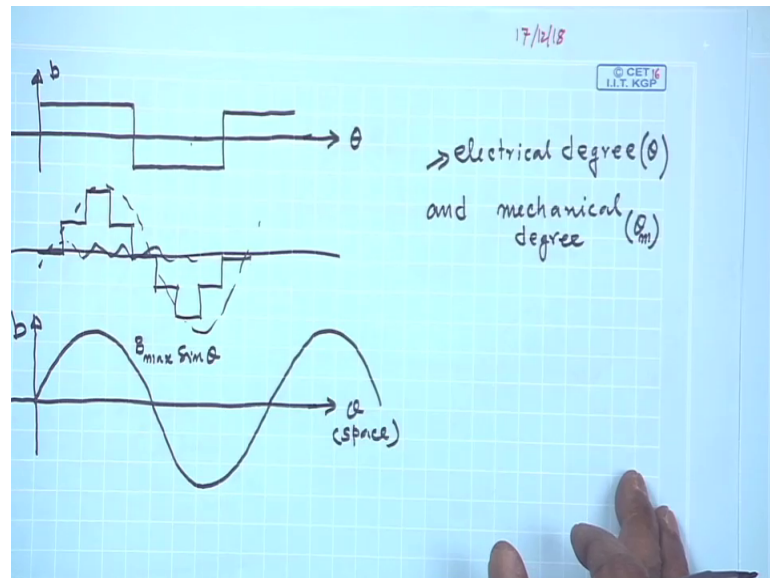 17/12/18
© CET 16
I.I.T. KGP
b
θ
electrical degree (θ)
and mechanical (θm)
degree
b
Bmax Sin θ
θ
(space)